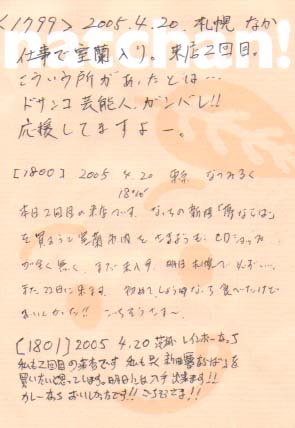 <1799> 2005.4.20. 札幌 なか
仕事で室蘭入り。来店2回目。
こういう所があったとは…
ドサンコ芸能人、ガンバレ!!
応援してますよー。
[1800] 2005 4.20 東京 なつみるく
18:10
本日2回目の来店です。なっちの新曲「
を買おうと室蘭市内をさまようも、CDショップ
が全く無く、まだ未入手、明日札幌で
また22日に来ます 初めてしょうゆ 食べたけど
おいしかった!! ごちそうさまー。
[1801] 2005 4.20 茨城 レインボーなっち
私も2回目の来店です 私も早く新曲 を
買いたいと思っています。明日には入手出来ます!!
カレーなっちおいしかったです!! ごちそうさま!!